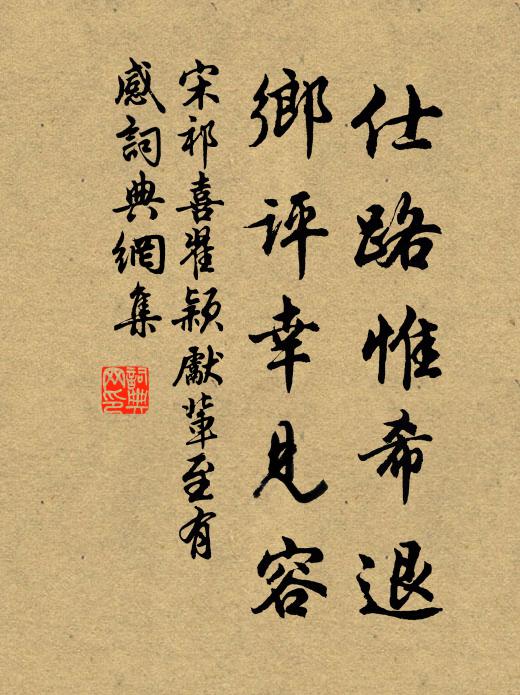 仕路惟希退
鄉評幸見容
宋祁喜翟穎獻輩至有
感詞典網集
詞典
网印